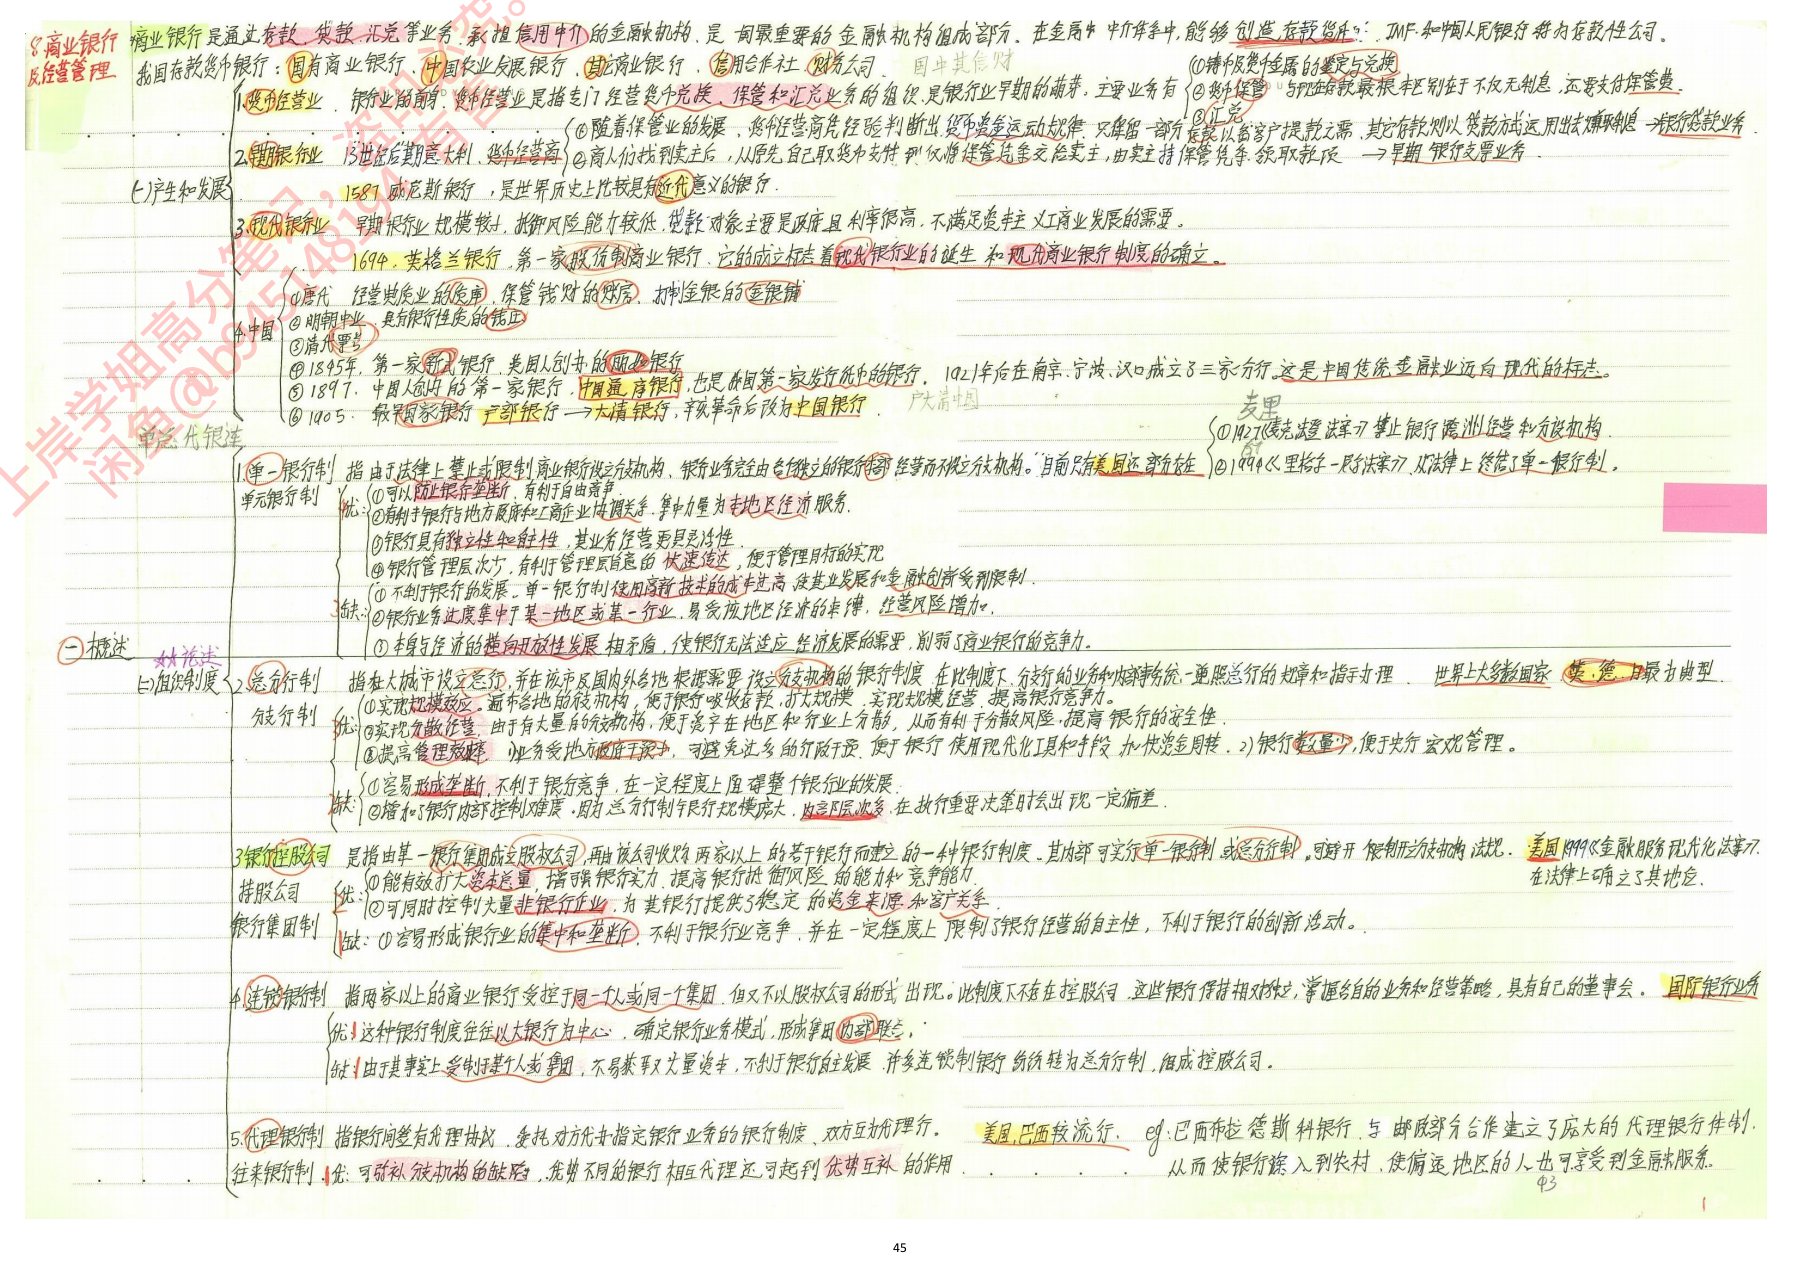 8.商业银行及经营管理
商业银行是通过存款、贷款、汇兑等业务,承担信用中介的金融机构,是一国最重要的金融机构组成部分。在金融中介体系中,能够创造存款货币;IMF和中国人民银行称为存款性公司。
我国存款货币银行:国有商业银行、中国农业发展银行、其它商业银行、信用合作社、财务公司 国中其信财
㊀概述
㈠产生和发展
1.货币经营业 银行业的前身,货币经营业是指专门经营货币兑换、保管和汇兑业务的组织,是银行业早期的萌芽,主要业务有
①铸币及货币金属的鉴定与兑换
②货币保管 与现在存款最根本区别在于不仅无利息,还要支付保管费。
③汇兑
2.早期银行业 13世纪后期意大利,货币经营商
①随着保管业的发展,货币经营商凭经验判断出货币资金运动规律,只保留一部分存款以备客户提款之需,其它存款则以贷款方式运用出去赚取利息→银行贷款业务
②商人们找到卖主后,从原先自己取货币支付到仅将保管凭条交给卖主,由卖主持保管凭条领取款项 →早期银行支票业务.
1587 威尼斯银行,是世界历史上比较具有近代意义的银行.
3.现代银行业 早期银行业规模较小,抵御风险能力较低,贷款对象主要是政府且利率很高,不满足资本主义工商业发展的需要。
1694,英格兰银行,第一家股份制商业银行,它的成立标志着现代银行业的诞生和现代商业银行制度的确立。
4.中国
①唐代 经营典质业的质库,保管钱财的账房,打制金银的金银铺
②明朝中业,具有银行性质的钱庄
③清代票号
④1845年,第一家新式银行,英国人创办的丽如银行
⑤1897,中国人创办的第一家银行,中国通商银行,也是我国第一家发行纸币的银行,1921年后在南京、宁波、汉口成立了三家分行,这是中国传统金融业迈向现代的标志。
⑥1905,最早国家银行户部银行→大清银行,辛亥革命后改为中国银行. 户大清中国
单总代银连
㈡组织制度
论述
麦里
1.单一银行制 指由于法律上禁止或限制商业银行设立分支机构,银行业务完全由各自独立的银行总部经营而不设立分支机构。目前只有美国还部分存在
①1927《麦克法登法案》禁止银行跨州经营和分设机构.
②1994《里格尔-尼尔法案》从法律上终结了单一银行制.
单元银行制
优:①可以防止银行垄断,有利于自由竞争.
②有利于银行与地方政府和工商企业协调关系,集中力量为本地区经济服务.
③银行具有独立性和自主性,其业务经营更具灵活性.
④银行管理层次少,有利于管理层旨意的快速传达,便于管理目标的实现
缺:①不利于银行的发展,单一银行制使用高新技术的成本过高,使其业发展和金融创新受到限制.
②银行业务过度集中于某一地区或某一行业,易受该地区经济的束缚,经营风险增加.
③本身与经济的横向开放性发展相矛盾,使银行无法适应经济发展的需要,削弱了商业银行的竞争力.
2.总分行制 指在大城市设立总行,并在该市及国内外各地根据需要设立分支机构的银行制度.在此制度下,分支行的业务和内部事务统一遵照总行的规章和指示办理. 世界上大多数国家 英、德、日最为典型.
分支行制
优:①实现规模效应。遍布各地的分支机构,便于银行吸收存款,扩大规模,实现规模经营,提高银行竞争力。
②实现分散经营,由于有大量的分支机构,便于资本在地区和行业上分散,从而有利于分散风险,提高银行的安全性.
③提高管理效率.1)业务受地方政府干预小,可避免过多的行政干预,便于银行使用现代化工具和手段,加快资金周转.2)银行数量少,便于央行宏观管理。
缺:①容易形成垄断,不利于银行竞争,在一定程度上阻碍整个银行业的发展.
②增加了银行内部控制难度,因为总分行制银行规模庞大,内部层次多,在执行重要决策时会出现一定偏差.
3.银行控股公司 是指由某一银行集团成立股权公司,再由该公司收购两家以上的若干银行而建立的一种银行制度.其内部可实行单一银行制或总分行制.可避开限制开立分支机构法规. 美国1999《金融服务现代化法案》,在法律上确立了其地位.
持股公司
银行集团制
优:①能有效扩大资本总量,增强银行实力,提高银行抵御风险的能力和竞争能力
②可同时控制大量非银行企业,为其银行提供了稳定的资金来源和客户关系.
缺:①容易形成银行业的集中和垄断,不利于银行业竞争,并在一定程度上限制了银行经营的自主性,不利于银行的创新活动。
4.连锁银行制 指两家以上的商业银行受控于同一个人或同一个集团,但又不以股权公司的形式出现。此制度下不存在控股公司,这些银行保持相对独立,掌握各自的业务和经营策略,具有自己的董事会. 国际银行业务
优:1这种银行制度往往以大银行为中心,确定银行业务模式,形成集团内部联合.
缺:1由于其事实上受制于某个人或集团,不易获取大量资本,不利于银行自主发展.许多连锁制银行纷纷转为总分行制,组成控股公司。
5.代理银行制 指银行间签有代理协议,委托对方代办指定银行业务的银行制度,双方互为代理行。 美国、巴西较流行. eg:巴西布拉德斯科银行,与邮政部分合作建立了庞大的代理银行体制,
从而使银行深入到农村,使偏远地区的人也可享受到金融服务。
往来银行制
优:可弥补分支机构的缺陷,优势不同的银行相互代理还可起到优势互补的作用
1
上岸学姐高分笔记,盗印必究。
闲鱼@b945148194有售
45